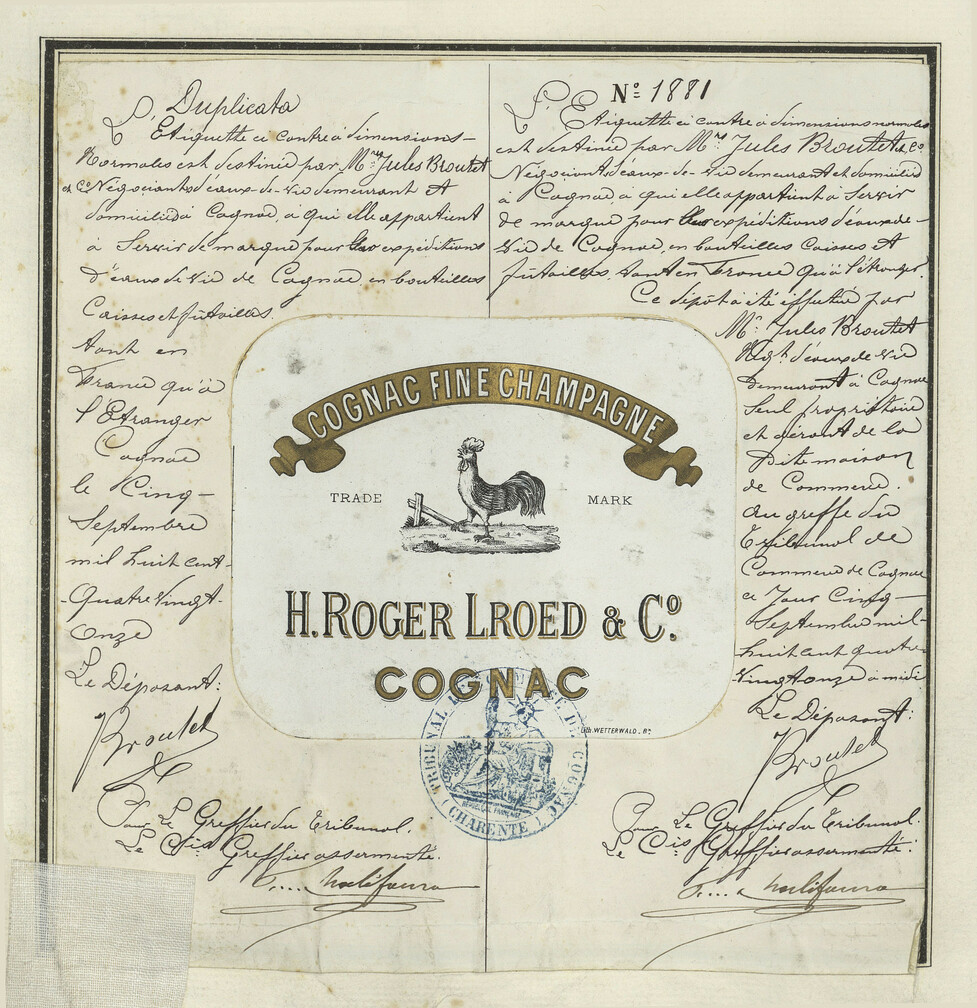 Duplicata
L'Etiquette ci contre à dimensions
Normales est destinée par Mrs Jules Broutet
et Co Négociants d'eaux-de-vie demeurant et
domiciliés à Cognac, à qui elle appartient
à Servir de marque pour les expéditions
d'eaux de vie de Cognac, en bouteilles
Caisses et futailles.
tant en
France qu'à
l'Etranger
Cognac
le Cinq
Septembre
mil huit cent
Quatre Vingt
Onze
Le Déposant:
Broutet
Pour Le Greffier du Tribunal.
Le Cis Greffier assermenté.
No 1881
L'Etiquette ci contre à dimensions normales
est destinée par Mrs Jules Broutet et Co
Négociants d'eaux-de-vie demeurant et domiciliés
à Cognac, à qui elle appartient à Servir
de marque pour les expéditions d'eaux de
Vie de Cognac, en bouteilles Caisses et
futailles, tant en France qu'à l'étranger.
Ce dépôt à été éffectué par
Mr Jules Broutet
Négt d'eaux de vie
demeurant à Cognac
seul propriétaire
et gérant de la
dite maison
de Commerce.
au greffe du
Tribunal de
Commerce de Cognac
ce Jour Cinq
Septembre mil
huit cent quatre
vingt onze à midi
Le Déposant:
Broutet
Pour Le Greffier du Tribunal.
Le Cis Greffier assermenté:
COGNAC FINE CHAMPAGNE
TRADE MARK
H. ROGER LROED & Co.
COGNAC
Lith. WETTERWALD. Bx
TRIBUNAL DE COMMERCE DE COGNAC
(CHARENTE)